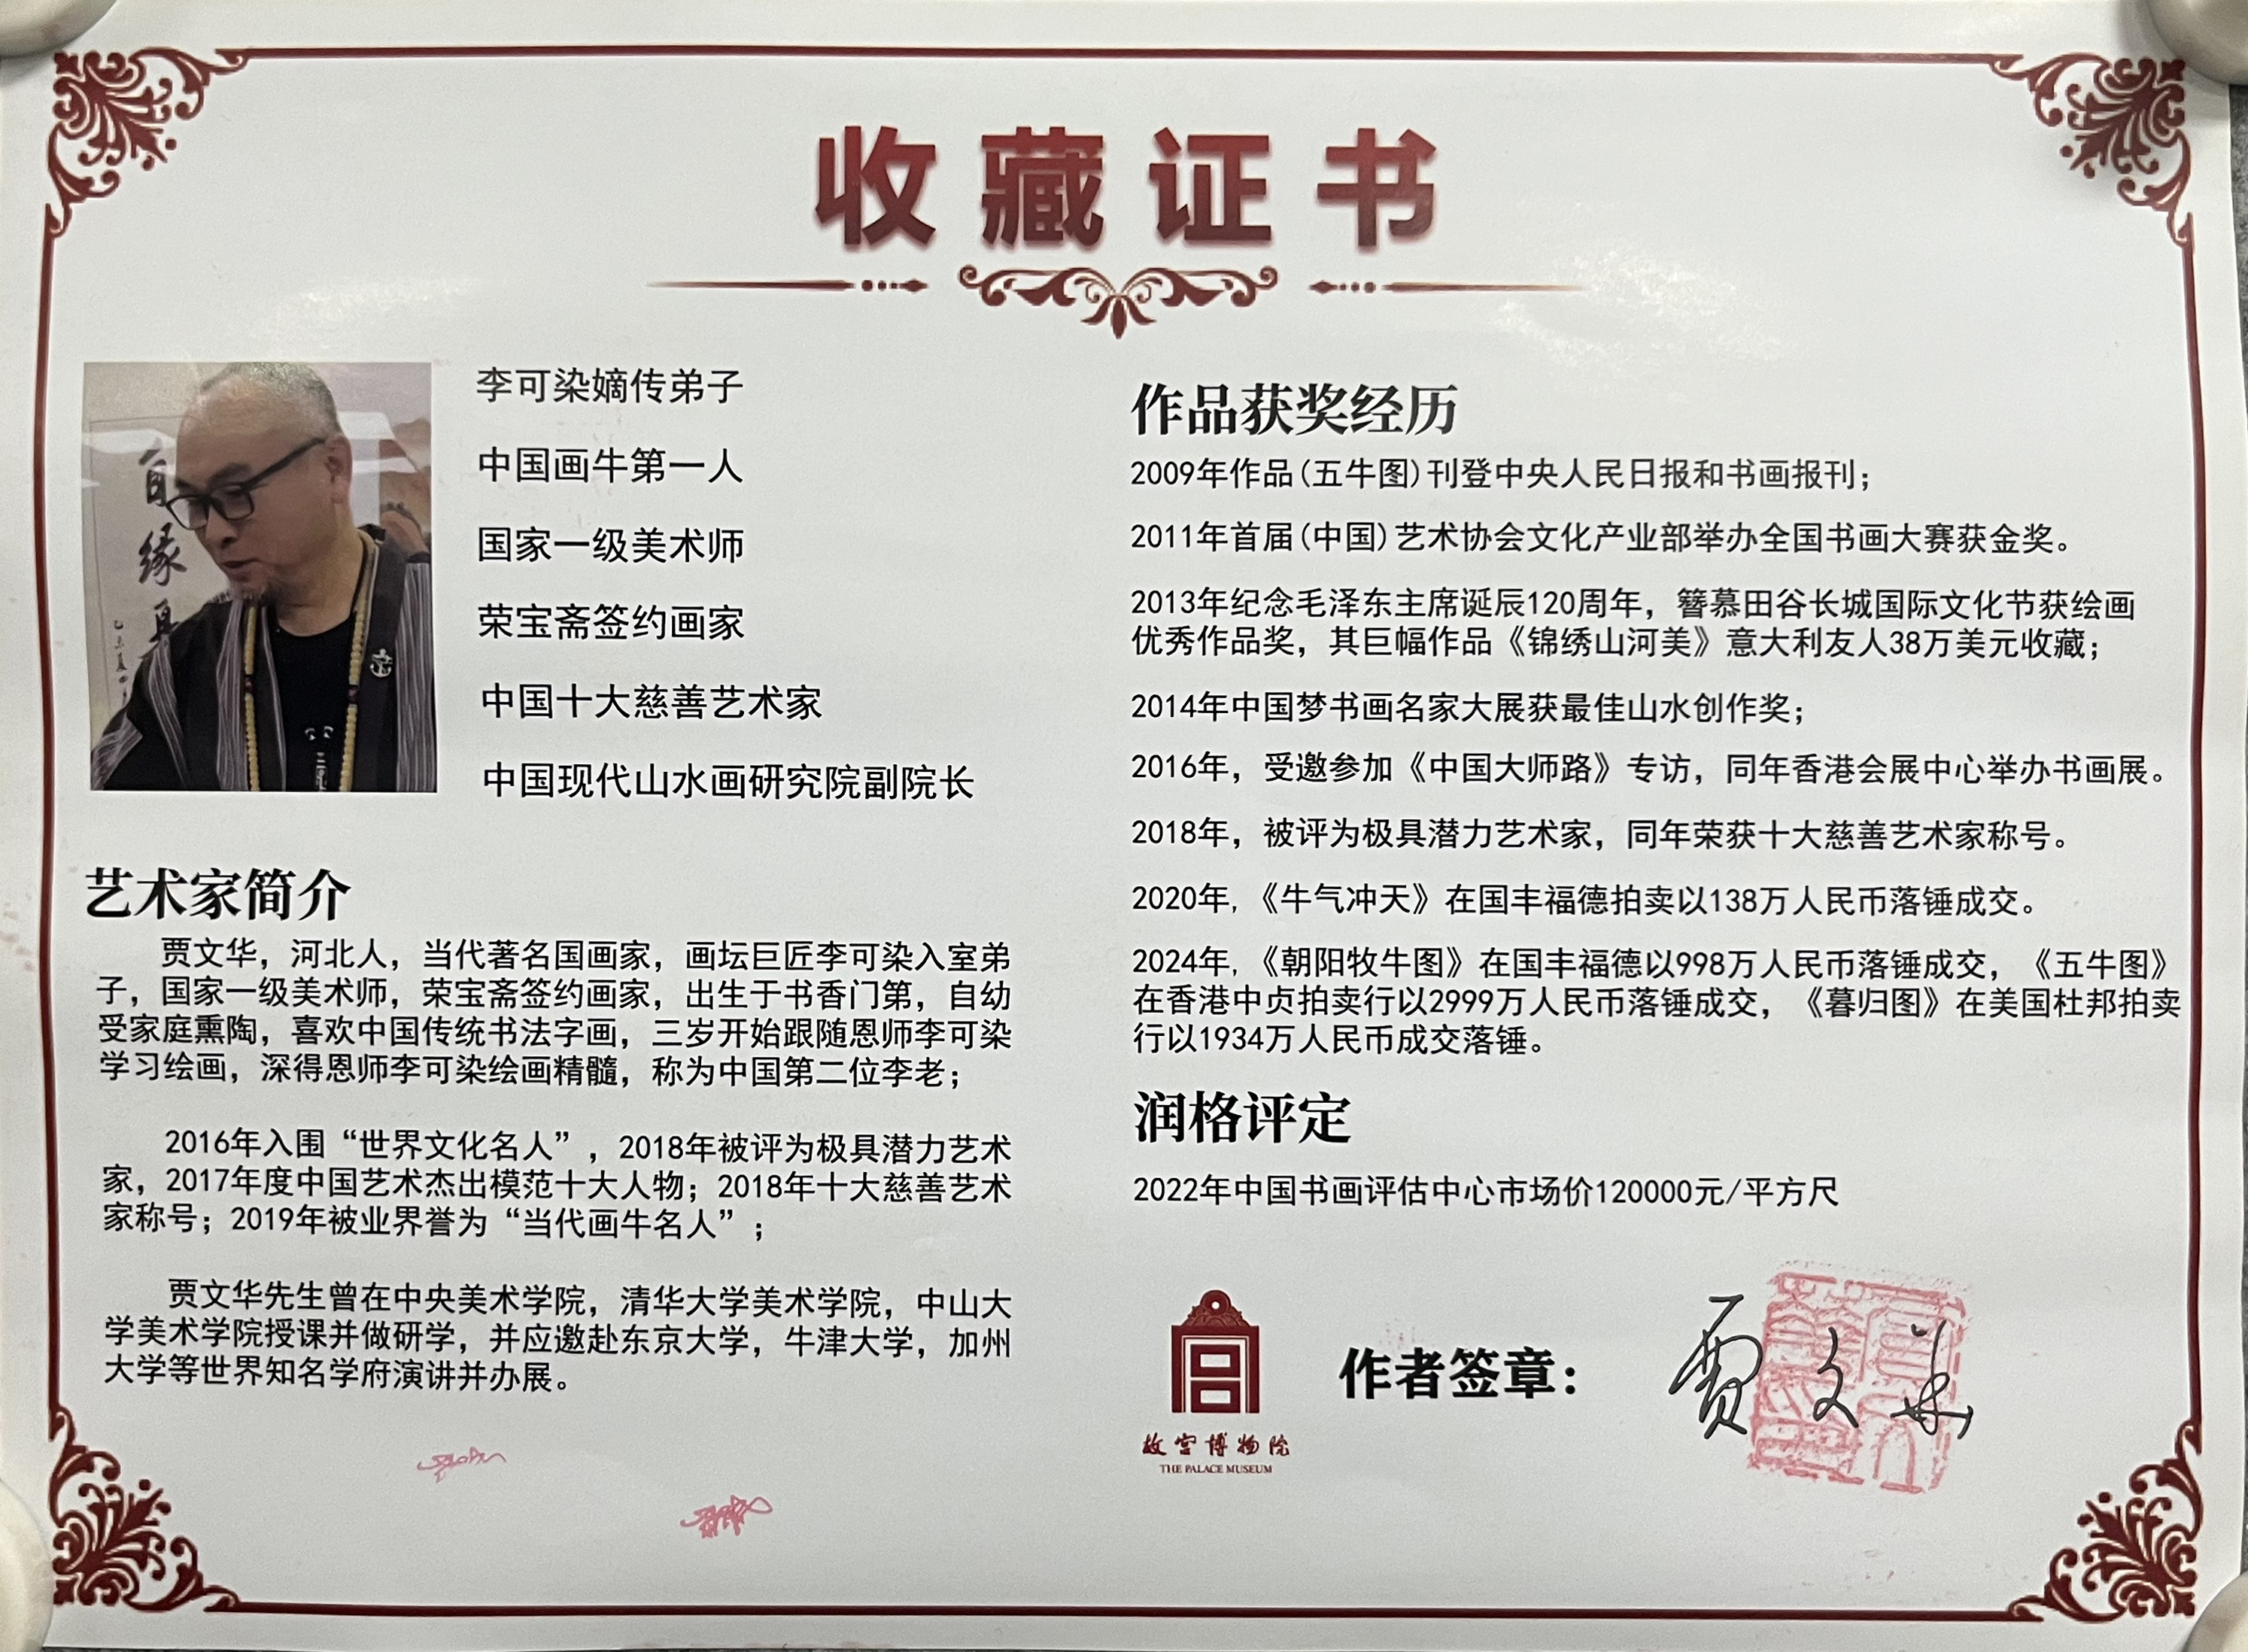 收藏证书
自缘
李可染嫡传弟子
中国画牛第一人
国家一级美术师
荣宝斋签约画家
中国十大慈善艺术家
中国现代山水画研究院副院长
艺术家简介
贾文华，河北人，当代著名国画家，画坛巨匠李可染入室弟
子，国家一级美术师，荣宝斋签约画家，出生于书香门第，自幼
受家庭熏陶，喜欢中国传统书法字画，三岁开始跟随恩师李可染
学习绘画，深得恩师李可染绘画精髓，称为中国第二位李老；
2016年入围“世界文化名人”，2018年被评为极具潜力艺术
家，2017年度中国艺术杰出模范十大人物；2018年十大慈善艺术
家称号；2019年被业界誉为“当代画牛名人”；
贾文华先生曾在中央美术学院，清华大学美术学院，中山大
学美术学院授课并做研学，并应邀赴东京大学，牛津大学，加州
大学等世界知名学府演讲并办展。
作品获奖经历
2009年作品(五牛图)刊登中央人民日报和书画报刊；
2011年首届(中国)艺术协会文化产业部举办全国书画大赛获金奖。
2013年纪念毛泽东主席诞辰120周年，簪慕田谷长城国际文化节获绘画
优秀作品奖，其巨幅作品《锦绣山河美》意大利友人38万美元收藏；
2014年中国梦书画名家大展获最佳山水创作奖；
2016年，受邀参加《中国大师路》专访，同年香港会展中心举办书画展。
2018年，被评为极具潜力艺术家，同年荣获十大慈善艺术家称号。
2020年,《牛气冲天》在国丰福德拍卖以138万人民币落锤成交。
2024年,《朝阳牧牛图》在国丰福德以998万人民币落锤成交，《五牛图》
在香港中贞拍卖行以2999万人民币落锤成交，《暮归图》在美国杜邦拍卖
行以1934万人民币成交落锤。
润格评定
2022年中国书画评估中心市场价120000元/平方尺
故宫博物院
THE PALACE MUSEUM
作者签章：
贾文华